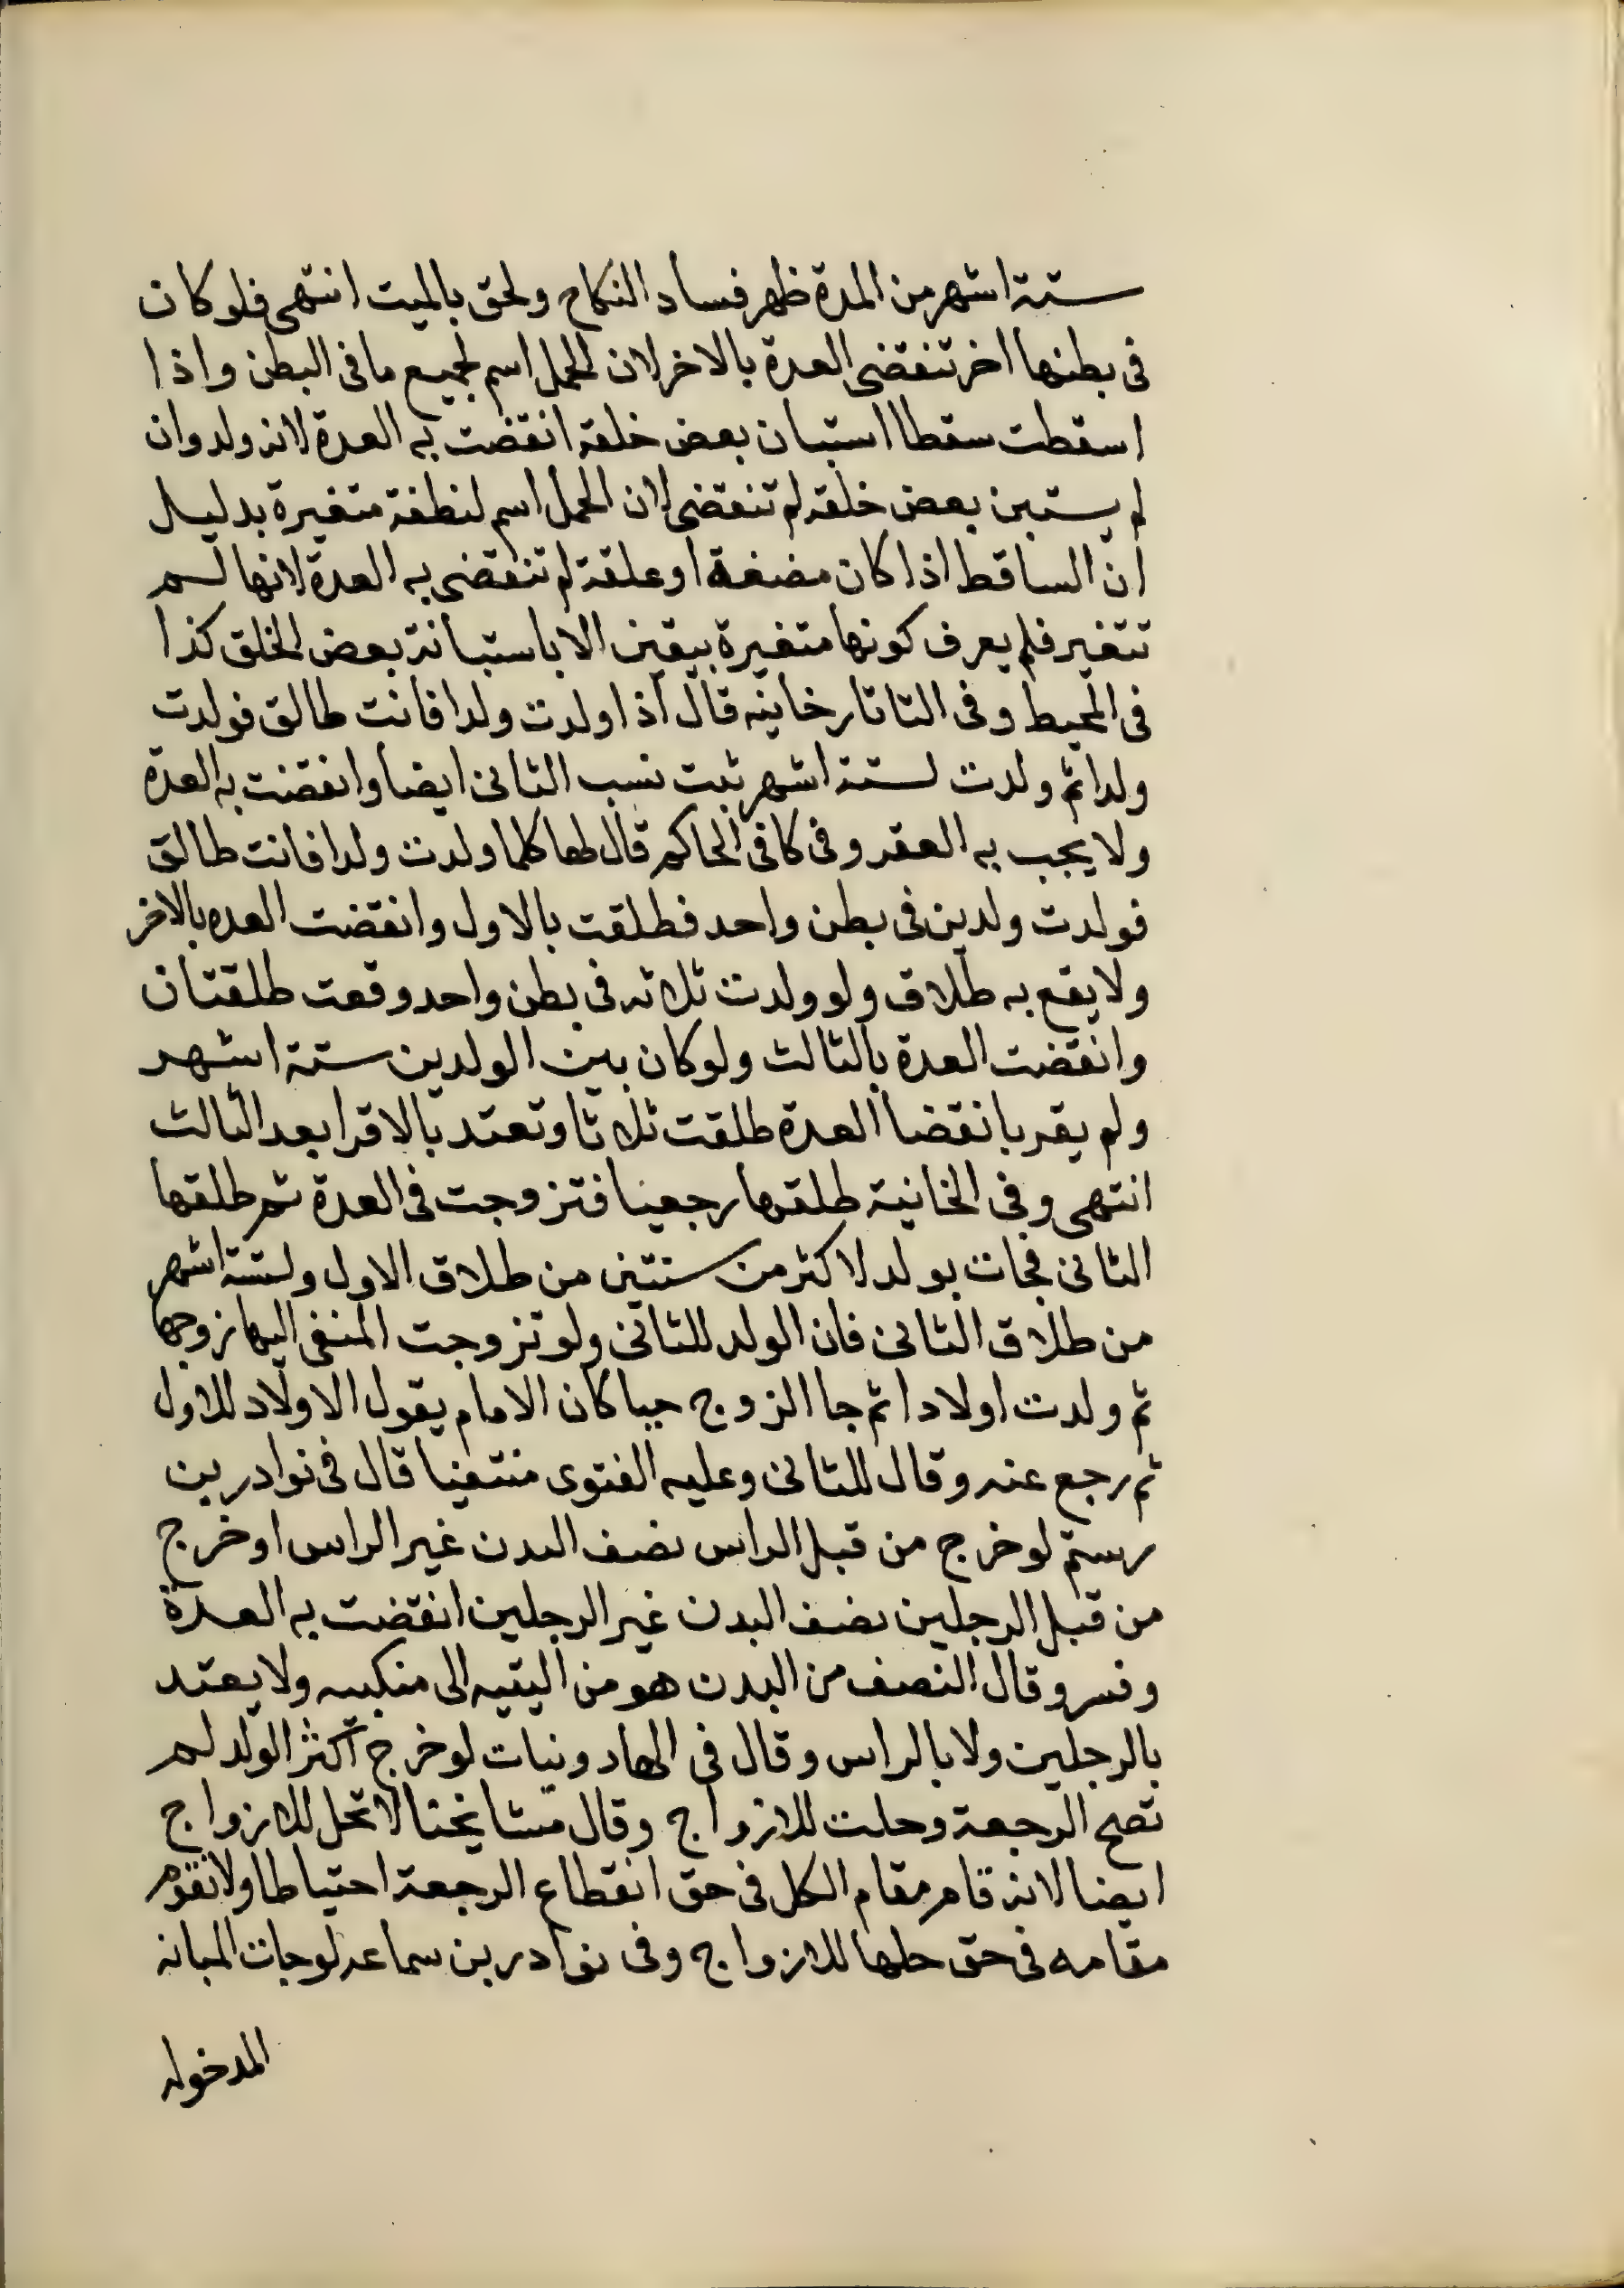 ستة اشهر من المدة ظهر فساد النكاح ولحق بالميت انتهى فلو كان
فى بطنها اخر تنقضى العدة بالاخر لان الحمل اسم لجميع ما فى البطن واذا
اسقطت سقطا استبان بعض خلقه انقضت به العدة لانه ولد وان
لم يستبن بعض خلقه لم تنقضى لان الحمل اسم لنطفة متغيرة بدليل
ان الساقط اذا كان مضغة او علقة لم تنقضى به العدة لانها لم
تتغير فلم يعرف كونها متغيرة بيقين الا باستبانة بعض الخلق كذا
فى المحيط وفى التاتارخانيه قال اذا ولدت ولدا فانت طالق فولدت
ولدا ثم ولدت لستة اشهر ثبت نسب الثانى ايضا وانقضت به العدة
ولا يجب به العقر وفى كافى الحاكم قال لها كلما ولدت ولدا فانت طالق
فولدت ولدين فى بطن واحد فطلقت بالاول وانقضت العده بالاخر
ولا يقع به طلاق ولو ولدت ثلاثه فى بطن واحد وقعت طلقتان
وانقضت العدة بالثالث ولو كان بين الولدين ستة اشهر
ولم يقر بانقضا العدة طلقت ثلاثا وتعتد بالاقرا بعد الثالث
انتهى وفى الخانية طلقها رجعيا فتزوجت فى العدة ثم طلقها
الثانى فجات بولد لاكثر من سنتين من طلاق الاول ولستة اشهر
من طلاق الثانى فان الولد للثانى ولو تزوجت المنفى اليها زوجها
ثم ولدت اولادا ثم جا الزوج حيا كان الامام يقول الاولاد للاول
ثم رجع عنه وقال للثانى وعليه الفتوى منتفيا قال فى نوادر بن
رستم لو خرج من قبل الراس نصف البدن غير الراس او خرج
من قبل الرجلين نصف البدن غير الرجلين انقضت به العدة
وفسر وقال النصف من البدن هو من اليتيه الى منكبيه ولا يعتد
بالرجلين ولا بالراس وقال فى الهارونيات لو خرج اكثر الولد لم
تصح الرجعة وحلت للازواج وقال مشايخنا لا تحل للازواج
ايضا لانه قام مقام الكل فى حق انقطاع الرجعة احتياطا ولا تقوم
مقامه فى حق حلها للازواج وفى نوادر بن سماعه لو جات المبانه
المدخوله